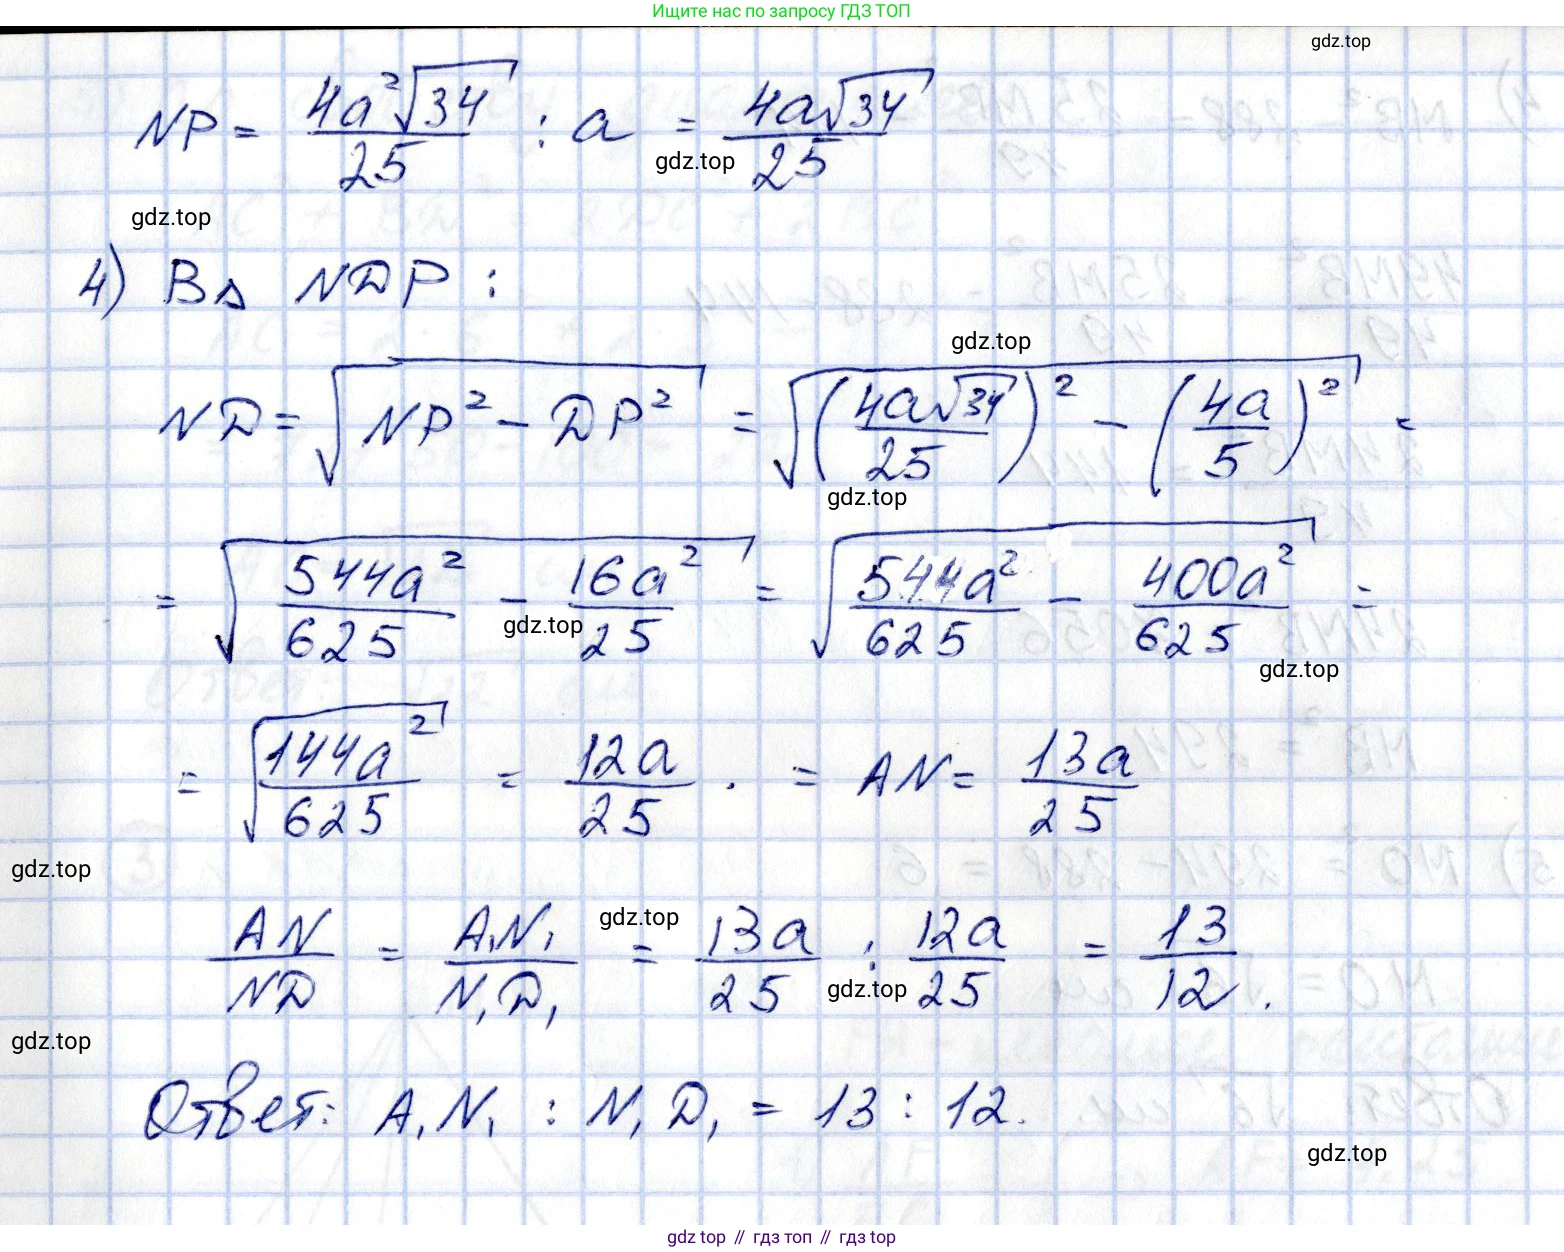 Ищите нас по запросу ГДЗ ТОП
gdz.top
NP = 4a²√34/25 : a = 4a√34/25
gdz.top
gdz.top
4) В △ NDP :
gdz.top
ND = √(NP² - DP²) = √((4a√34/25)² - (4a/5)²) =
gdz.top
= √(544a²/625 - 16a²/25) = √(544a²/625 - 400a²/625) =
gdz.top
gdz.top
= √(144a²/625) = 12a/25 . = AN = 13a/25
gdz.top
gdz.top
AN/ND = A₁N₁/N₁D₁ = 13a/25 : 12a/25 = 13/12 .
gdz.top
gdz.top
Ответ: A₁N₁ : N₁D₁ = 13 : 12.
gdz.top
gdz top // гдз топ // гдз top